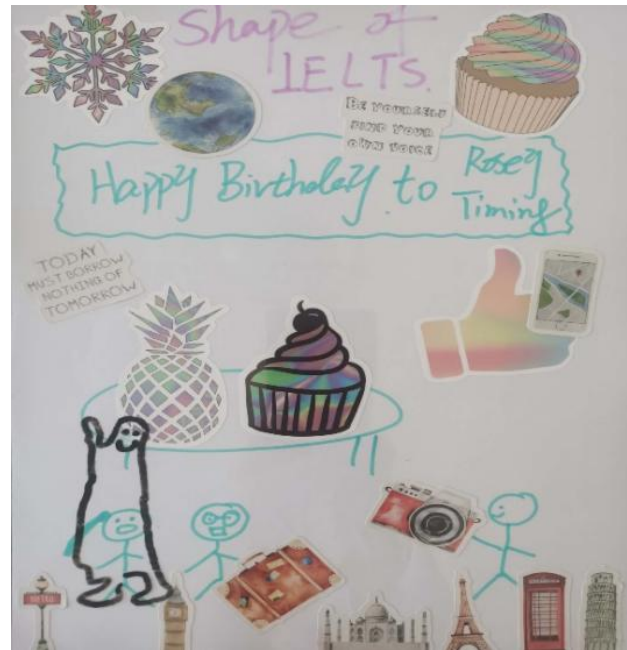 Shape of
IELTS.
BE YOURSELF
FIND YOUR
OWN VOICE
Happy Birthday to Rosey
Timing
TODAY
MUST BORROW
NOTHING OF
TOMORROW
METRO